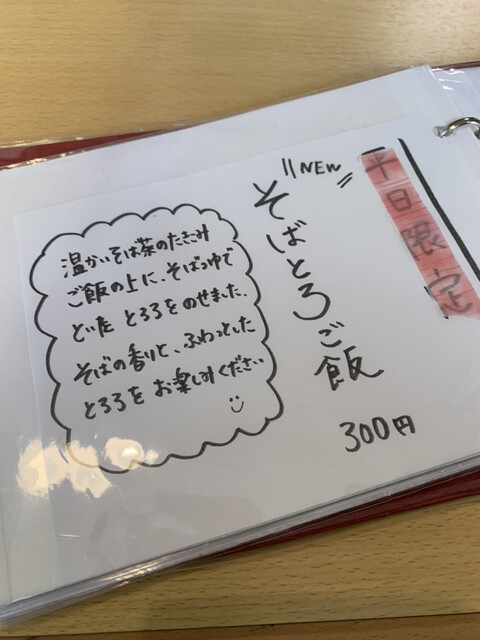 平日限定
NEW
そばとろろご飯
300円
温かいそば茶のたきこみ
ご飯の上に、そばつゆで
といた とろろをのせました。
そばの香りと、ふわっとした
とろろをお楽しみください